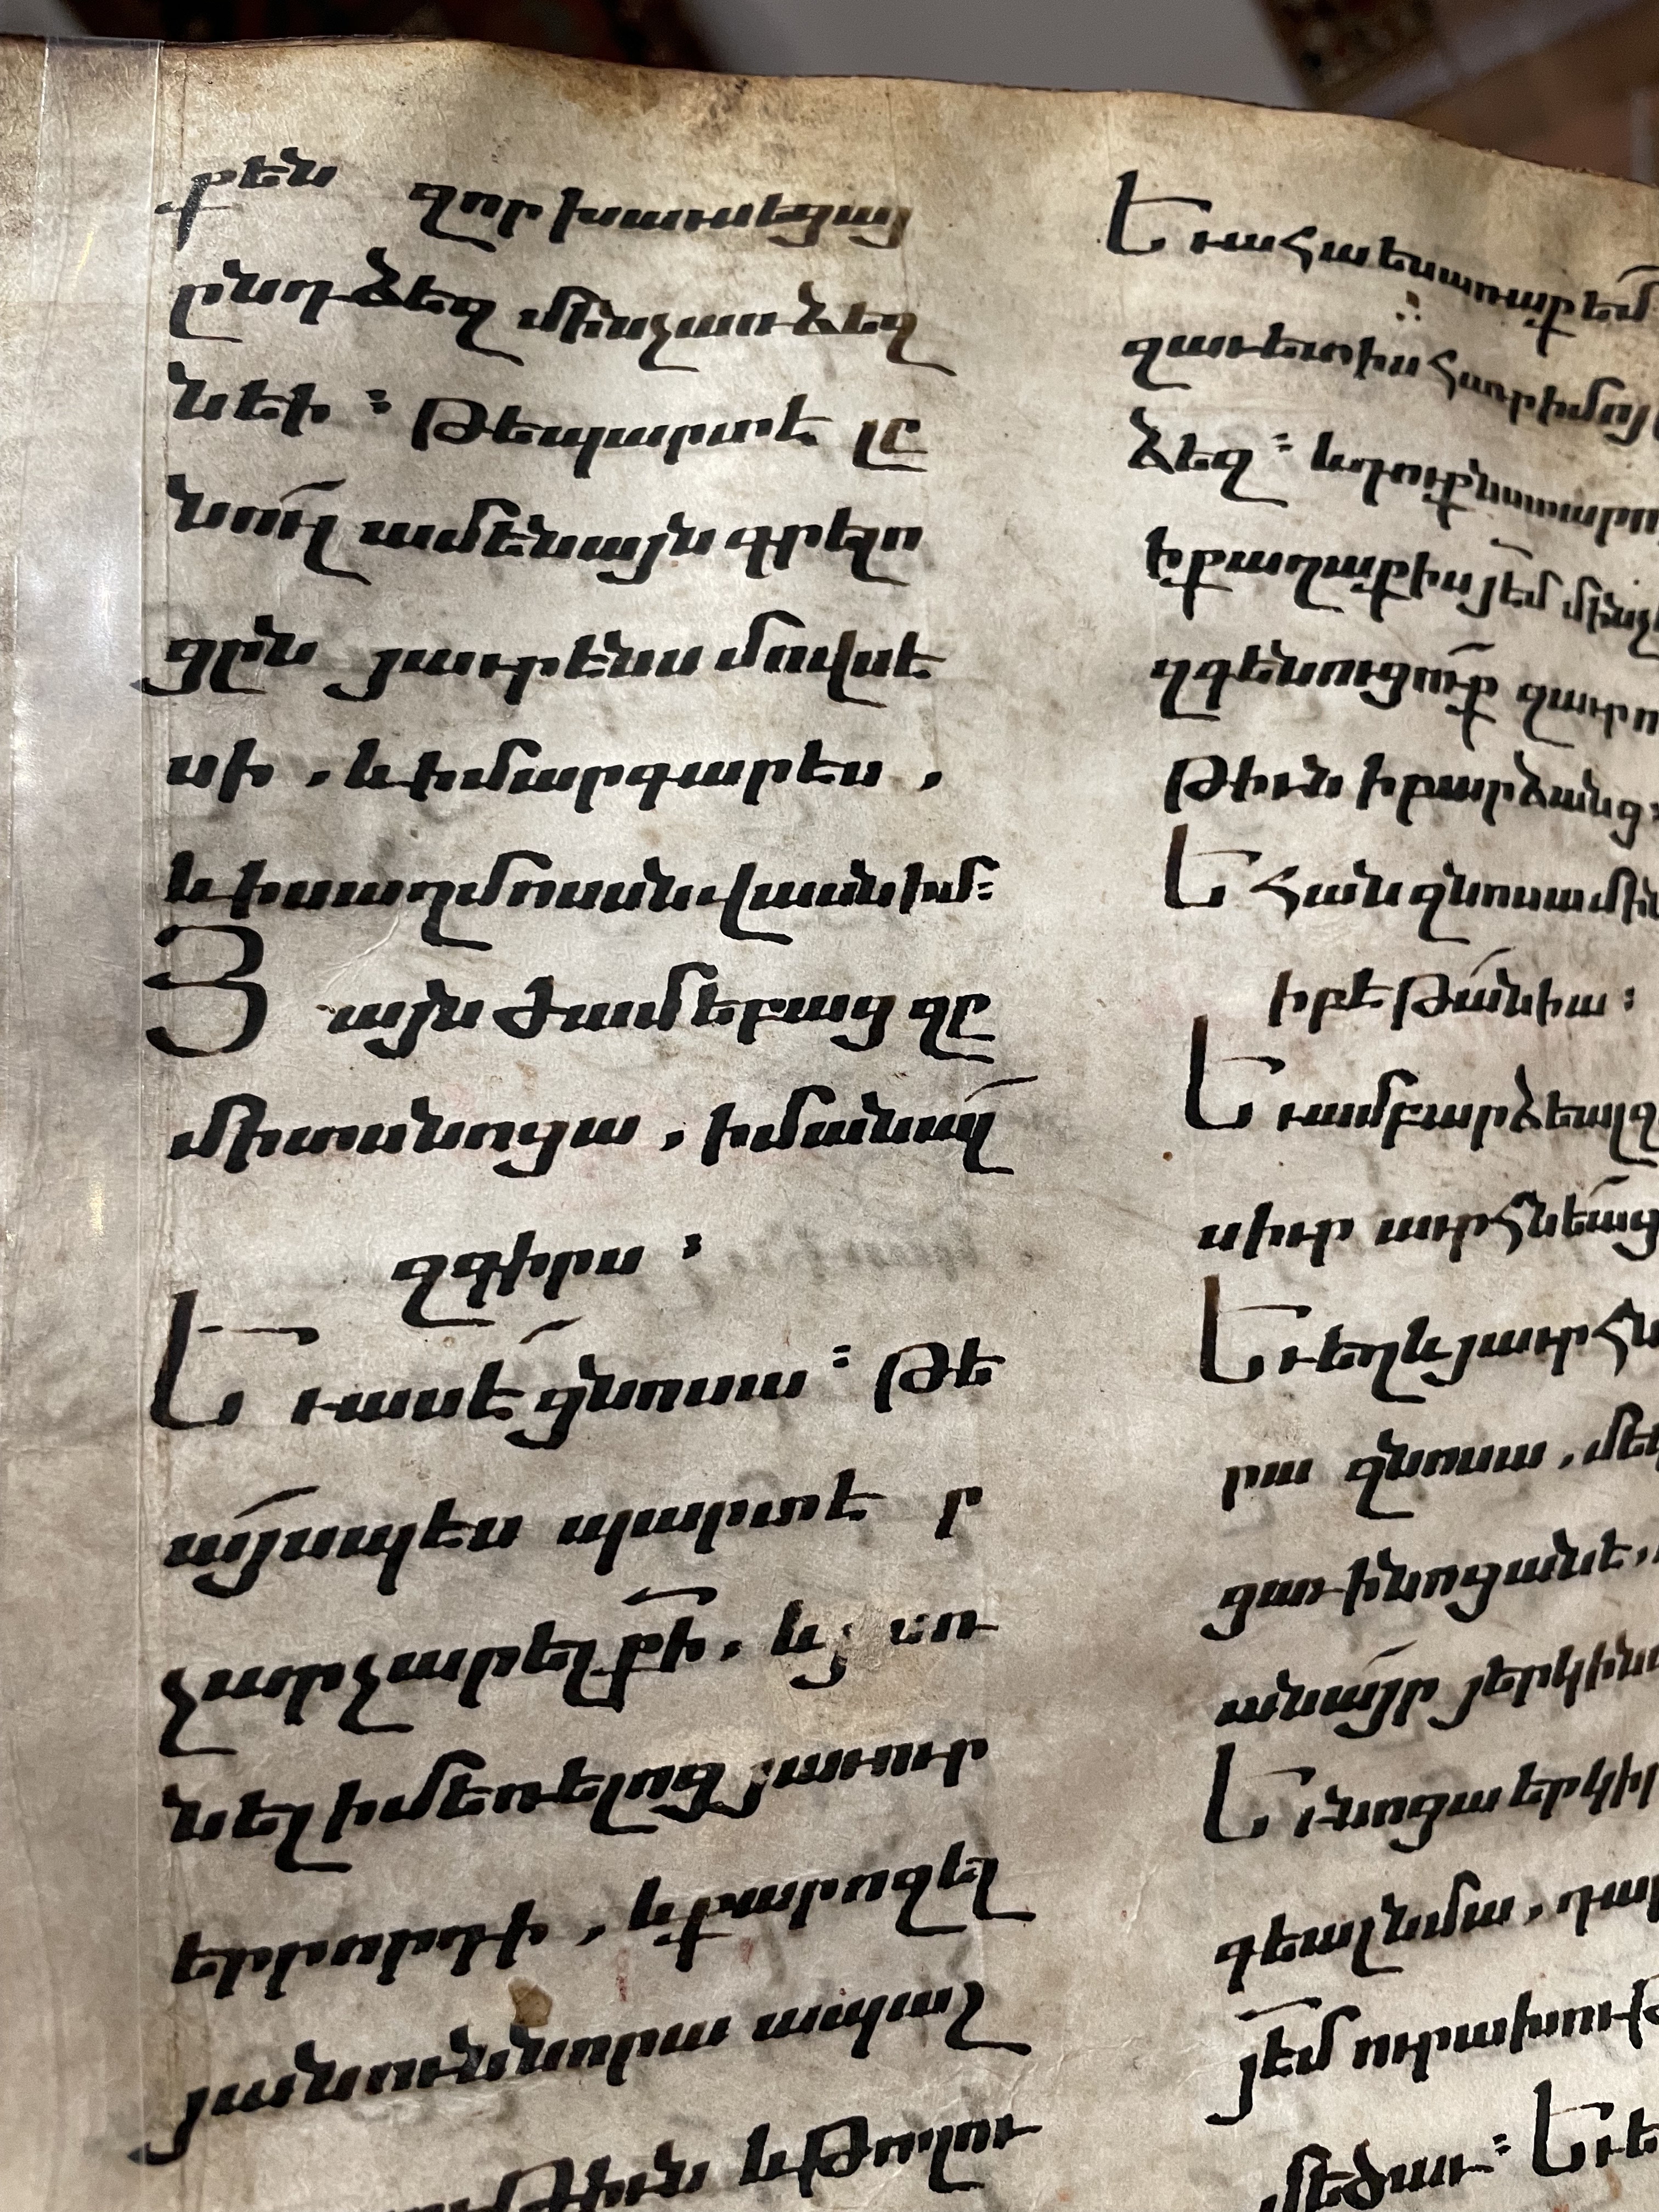 քեն զոր խաւսեցայ
ընդ ձեզ մինչառ ձեզ
նեի ։ Թե պարտ է լը
նուլ ամենայն գրելո
ցըն յաւրէնս մովսե
սի , և ի մարգարէս ,
և ի սաղմոսսն վասն իմ ։
Յ այն ժամ եբաց զը
միտս նոցա , իմանալ
զգիրս ։
Ե ւ ասէ ցնոսա ։ Թե
այսպէս պարտ է ր
չարչարել քի , և յ առ
նել ի մեռելոց յաւուր
երրորդի , և քարոզել
յանուն նորա ապաշ
ութիւն և թողու
Ե ւ ահա ես առաքեմ
զաւետիս հաւր իմոյ
ձեզ ։ և դուք նստարո
ի քաղաքիս յեմ մինչ
զգենուցուք զաւրո
թիւն ի բարձանց ։
Ե հան զնոսա մին
ի բեթանիա ։
Ե ւ ամբարձեալ զ
ս իւր աւրհնեաց
Ե ւ եղև յաւրհն
րա զնոսա , մե
ցաւ ի նոցանե ,
անայր յերկինս
Ե ւ նոցա երկիր
գեալ նմա , դար
յեմ ուրախութ
մեծաւ ։ Ե ւ ե